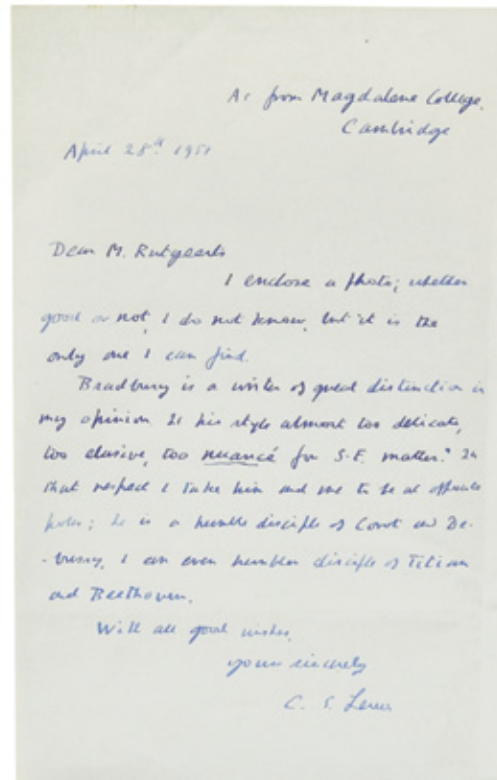 As from Magdalene College,
Cambridge
April 28th 1951
Dear M. Rutgeerts
I enclose a photo; whether
good or not, I do not know, but it is the
only one I can find.
Bradbury is a writer of great distinction in
my opinion. Is his style almost too delicate,
too elusive, too nuancé for S.F. matter? In
that respect I take him and me to be at opposite
poles; he is a humble disciple of Corot and De-
-bussy, I an even humbler disciple of Titian
and Beethoven.
With all good wishes,
yours sincerely
C. S. Lewis